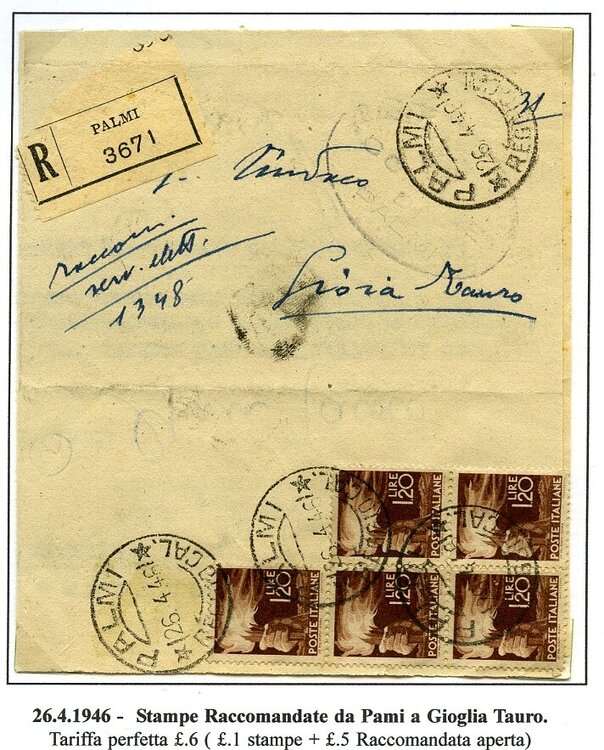 PALMI
R 3671
PALMI 26.4.46
31
Sindaco
raccom.
serv. elett.
1348
Gioia Tauro
LIRE 1,20 POSTE ITALIANE
LIRE 1,20 POSTE ITALIANE
PALMI 26.4.46 REGGIO CAL.
LIRE 1,20 POSTE ITALIANE
LIRE 1,20 POSTE ITALIANE
LIRE 1,20 POSTE ITALIANE
PALMI 26.4.46 REGGIO CAL.
26.4.1946 - Stampe Raccomandate da Pami a Gioglia Tauro.
Tariffa perfetta £.6 ( £.1 stampe + £.5 Raccomandata aperta)